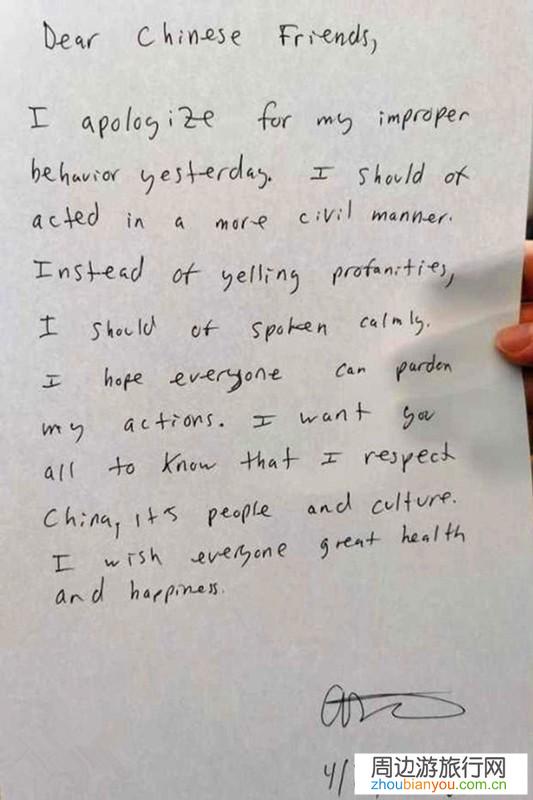 Dear Chinese Friends,
I apologize for my improper
behavior yesterday. I should of
acted in a more civil manner.
Instead of yelling profanities,
I should of spoken calmly.
I hope everyone can pardon
my actions. I want you
all to know that I respect
China, it's people and culture.
I wish everyone great health
and happiness.
4/
周边游旅行网
zhoubianyou.com.cn